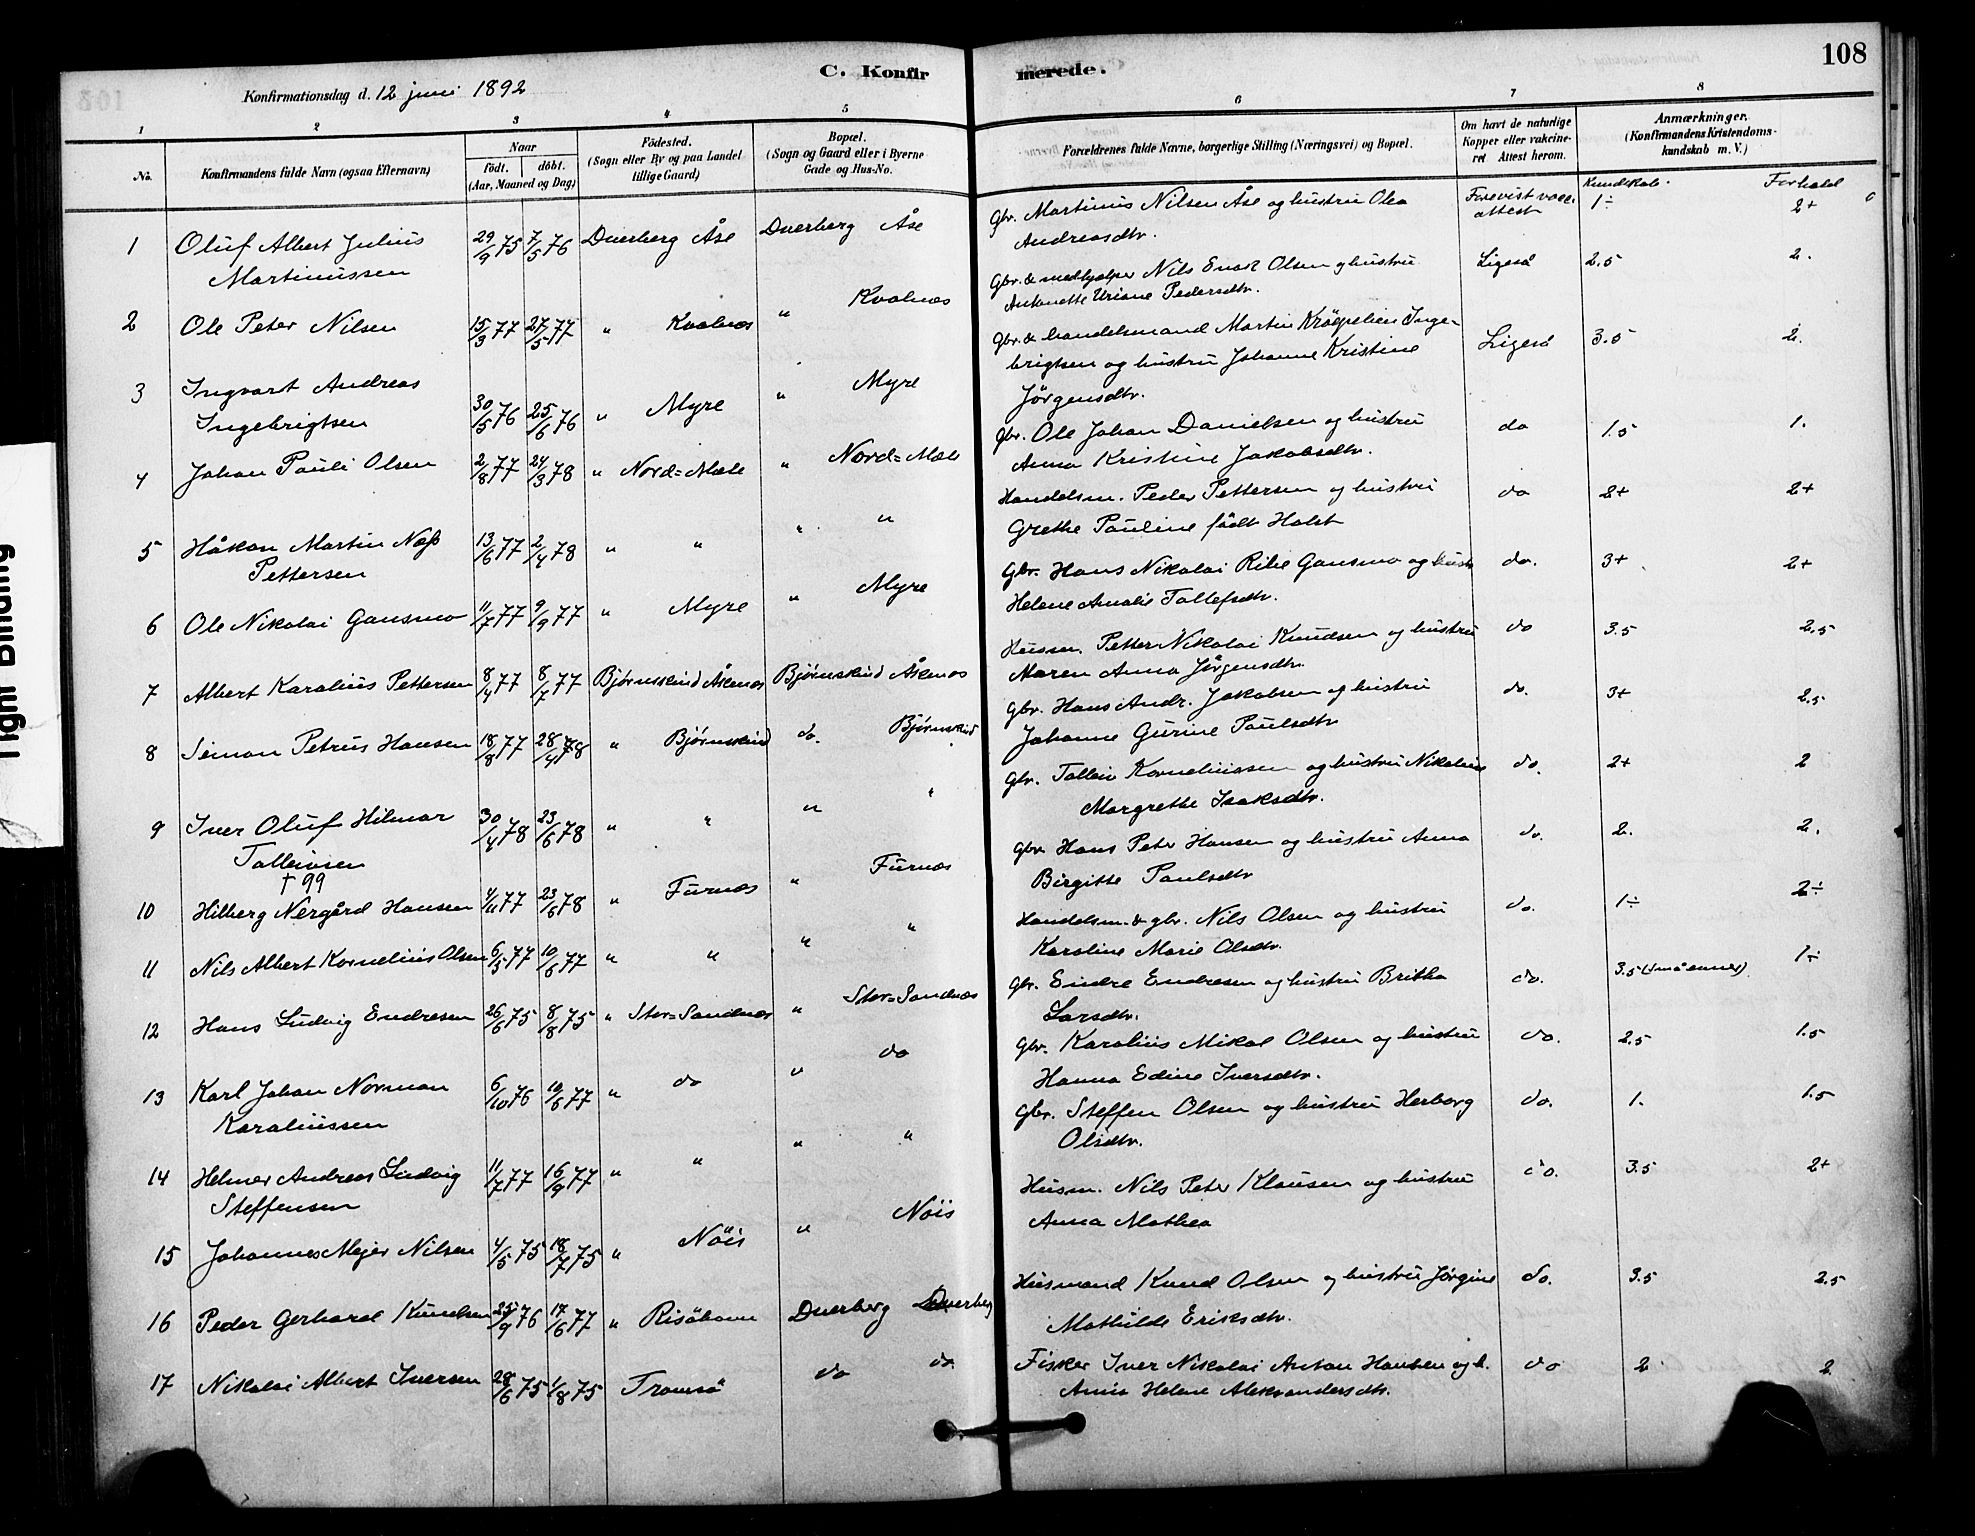 108
C. Konfirmerede.
Konfirmationsdag d. 12 juni 1892
1 2 3 4 5 6 7 8
No. Konfirmandens fulde Navn (ogsaa Efternavn) Naar födt. döbt. (Aar, Maaned og Dag) Födested. (Sogn eller By og paa Landet tillige Gaard) Bopæl. (Sogn og Gaard eller i Byerne Gade og Hus-No. Forældrenes fulde Navne, borgerlige Stilling (Næringsvei) og Bopæl. Om havt de naturlige Kopper eller vakcineret Attest herom. Anmærkninger. (Konfirmandens Kristendomskundskab m. V.)
Kundskab. Forhold
1 Oluf Albert Julius 29/9 75 7/5 76 Dverberg Åse Dverberg Åse Gbr. Martinus Nilsen Åse og hustru Olea Forevist vacc. 1÷ 2+
Martinussen Andreasdtr. attest
2 Ole Peter Nilsen 15/3 77 27/5 77 " Kvalnæs " Kvalnæs Gbr. & medhjelper Nils Enok Olsen og hustru Ligeså 2.5 2.
Antonette Uriane Pedersdtr.
3 Ingvart Andreas 30/5 76 25/6 76 " Myre " Myre Gbr. & handelsmand Martin Kröpelien Inge- Ligeså 3.5 2.
Ingebrigtsen brigtsen og hustru Johanne Kristine
Jörgensdtr.
4 Johan Pauli Olsen 2/8 77 24/3 78 " Nord=Mæle " Nord=Mæle gbr. Ole Johan Danielsen og hustru do 1.5 1.
Anna Kristine Jakobsdtr.
5 Håkon Martin Næss 13/6 77 2/4 78 " " " " Handelsm. Peder Pettersen og hustru do 2+ 2+
Pettersen Grethe Pauline födt Holst
6 Ole Nikolai Gansmo 11/7 77 9/9 77 " Myre " Myre Gbr. Hans Nikolai Ribe Gansmo og hustr do. 3+ 2+
Helene Amalie Tollefsdtr.
7 Albert Karolius Pettersen 8/4 77 8/7 77 Bjørnskind Åkenæs Bjørnskind Åkenæs Husm. Petter Nikolai Knudsen og hustru do 3.5 2.5
Maren Anna Jörgensdtr.
8 Simon Petrus Hansen 18/8 77 28/4 78 " Bjørnskind do. Bjørnskind gbr. Hans Andr. Jakobsen og hustru do. 3+ 2.5
Johanne Gurine Paulsdtr
9 Iver Oluf Hilmar 30/4 78 23/6 78 " " " " Gbr. Tolleiv Korneliussen og hustru Nikoline do. 2+ 2
Tolleivsen Margrethe Isaksdtr.
† 99
10 Hilberg Nergård Hansen 4/11 77 23/6 78 " Furnæs " Furnæs gbr Hans Peter Hansen og hustru Anna do. 2. 2.
Birgitte Paulsdtr
11 Nils Albert Kornelius Olsen 6/3 77 10/6 77 " " " " Handelsm. & gbr. Nils Olsen og hustru do. 1÷ 2÷
Karoline Marie Olsdtr.
12 Hans Ludvig Endresen 26/6 75 8/8 75 " Stor=Sandnæs " Stor=Sandnæs gbr. Endre Endresen og hustru Britha do. 3.5 (små evner) 1÷
Larsdtr.
13 Karl Johan Norman 6/10 76 10/6 77 " do " do gbr. Karolius Mikal Olsen og hustru do. 2.5 1.5
Karoliussen Hanna Edine Iversdtr.
14 Helmer Andreas Ludvig 11/7 77 16/9 77 " " " " gbr. Steffen Olsen og hustru Herborg do. 1. 1.5
Steffensen Olsdtr.
15 Johannes Mejer Nilsen 4/5 75 18/7 75 " Nöis " Nöis Husm. Nils Peter Klausen og hustru do. 3.5 2+
Anna Mathea
16 Peder Gerhard Knudsen 25/9 76 17/6 77 " Risöhavn Dverberg Dverberg Husmand Knud Olsen og hustru Jørgine do. 3.5 2.5
Mathilde Eriksdtr.
17 Nikolai Albert Iversen 28/6 75 1/8 75 Tromsö do do Fisker Iver Nikolai Anton Hansen og h. do 2 2
Anne Helene Aleksandersdtr.
Tight Binding